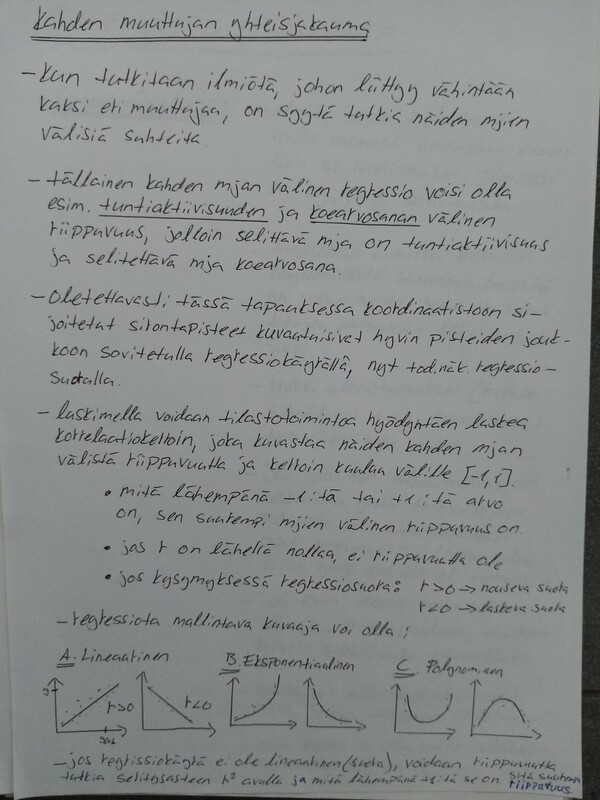 Kahden muuttujan yhteisjakauma
- Kun tutkitaan ilmiötä, johon liittyy vähintään
kaksi eri muuttujaa, on syytä tutkia näiden mjien
välisiä suhteita.
- tällainen kahden mjan välinen regressio voisi olla
esim. tuntiaktiivisuuden ja koearvosanan välinen
riippuvuus, jolloin selittävä mja on tuntiaktiivisuus
ja selitettävä mja koearvosana.
- Oletettavasti tässä tapauksessa koordinaatistoon si-
joitetut sirontapisteet kuvaatuisivat hyvin pisteiden jouk-
koon sovitetulla regressiokäyrällä, nyt tod.näk. regressio-
suoralla.
- laskimella voidaan tilastotoimintoa hyödyntäen laskea
korrelaatiokerroin, joka kuvastaa näiden kahden mjan
välistä riippuvuutta ja kerroin kuuluu välille [-1,1].
• mitä lähempänä -1:tä tai +1:tä arvo
on, sen suurempi mjien välinen riippuvuus on
• jos r on lähellä nollaa, ei riippuvuutta ole
• jos kysymyksessä regressiosuora: r>0 → nouseva suora
r<0 → laskeva suora
- regressiota mallintava kuvaaja voi olla:
A. Lineaarinen B. Eksponentiaalinen C. Polynominen
r>0 r<0
- jos regressiokäyrä ei ole lineaarinen (suora), voidaan riippuvuutta
tutkia selitysasteen r² avulla ja mitä lähempänä +1:tä se on, sitä suurempi
riippuvuus